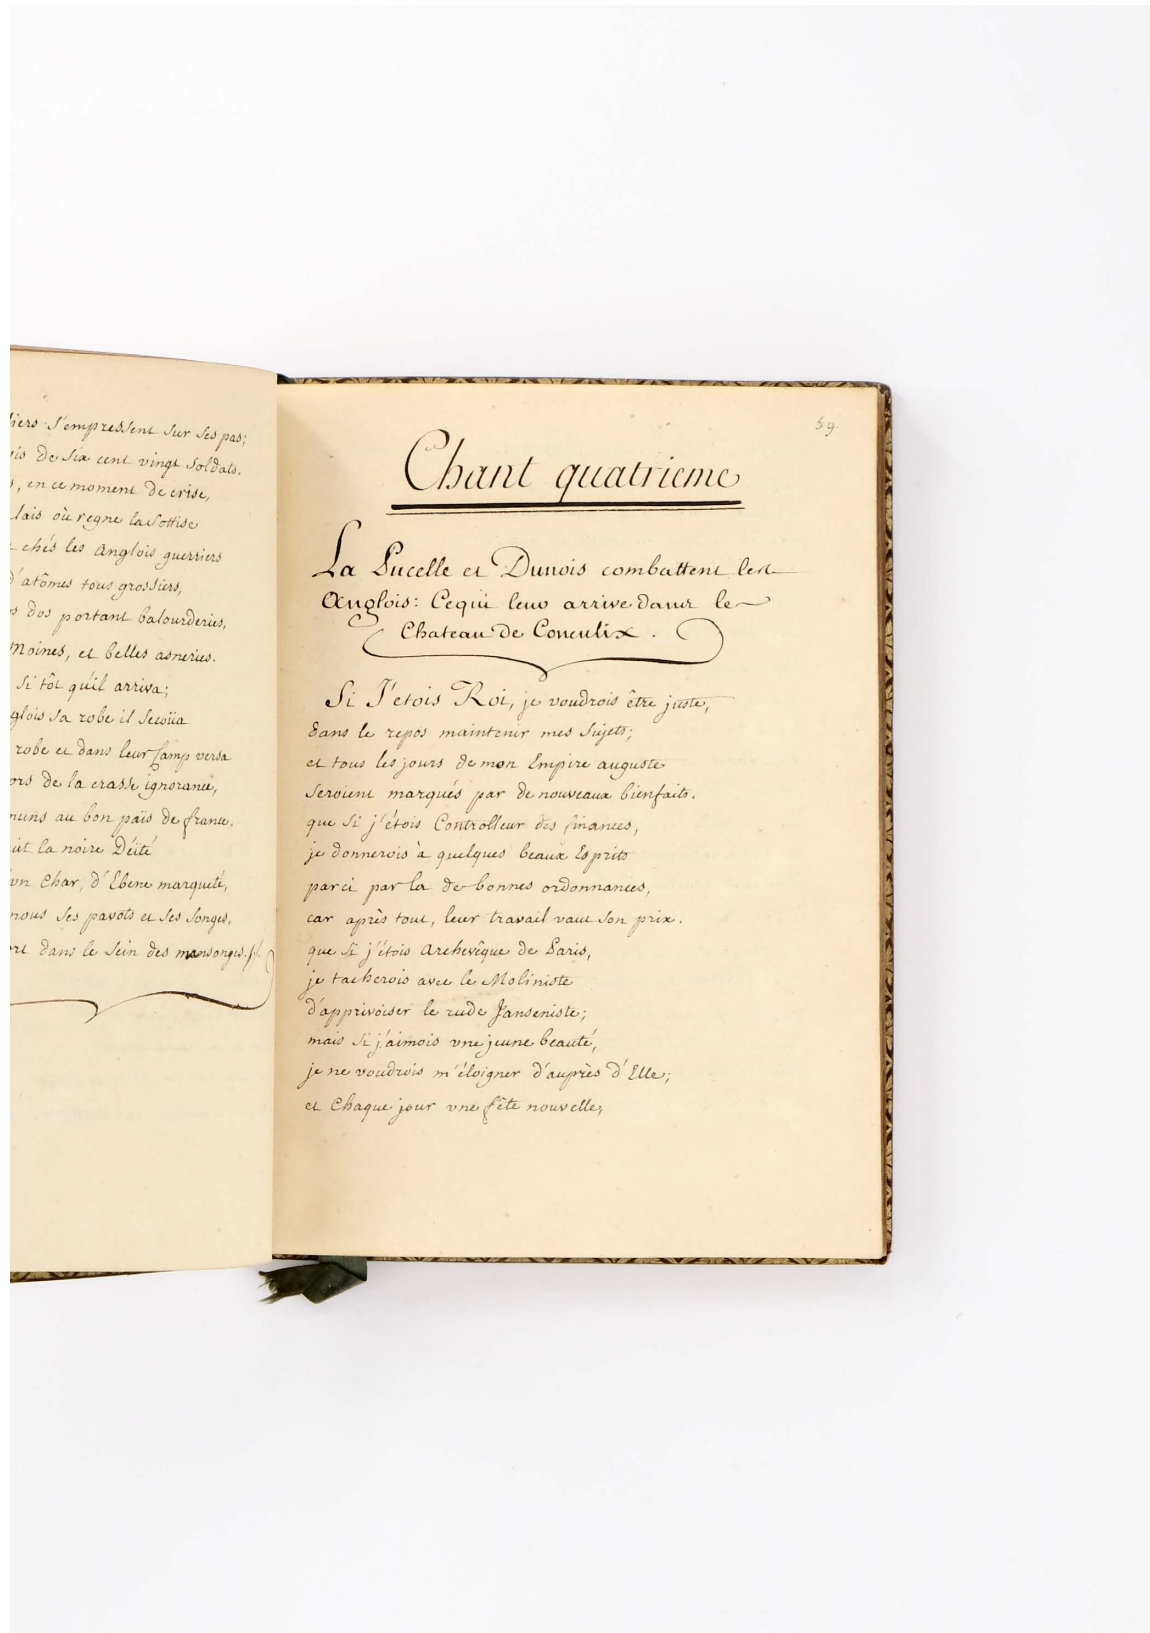 s'empressent sur ses pas;
de six cent vingt soldats.
, en ce moment de crise,
où regne la Sottise
chés les Anglois guerriers
d'atômes tous grossiers,
dos portant balourderies,
Moines, et belles asneries.
Si tôt qu'il arriva;
sa robe il secoüa
robe et dans leur Camp versa
de la crasse ignorance,
au bon païs de france.
la noire Déité
Char, d'Ebene marqueté,
nous ses pavots et ses songes,
dans le sein des mensonges.
59.
Chant quatrieme
La Pucelle et Dunois combattent les
Anglois: Cequi leur arrive dans le
Chateau de Conculix.
Si J'etois Roi, je voudrois être juste,
dans le repos maintenir mes Sujets;
et tous les jours de mon Empire auguste
seroient marqués par de nouveaux bienfaits.
que Si j'étois Controlleur des finances,
je donnerois à quelques beaux Esprits
parci par la de bonnes ordonnances,
car après tout, leur travail vaut son prix.
que Si j'étois Archevêque de Paris,
je tacherois avec le Moliniste
d'apprivoiser le rude Janseniste;
mais Si j'aimois vne jeune beauté,
je ne voudrois m'éloigner d'auprès d'Elle;
et Chaque jour vne fête nouvelle,